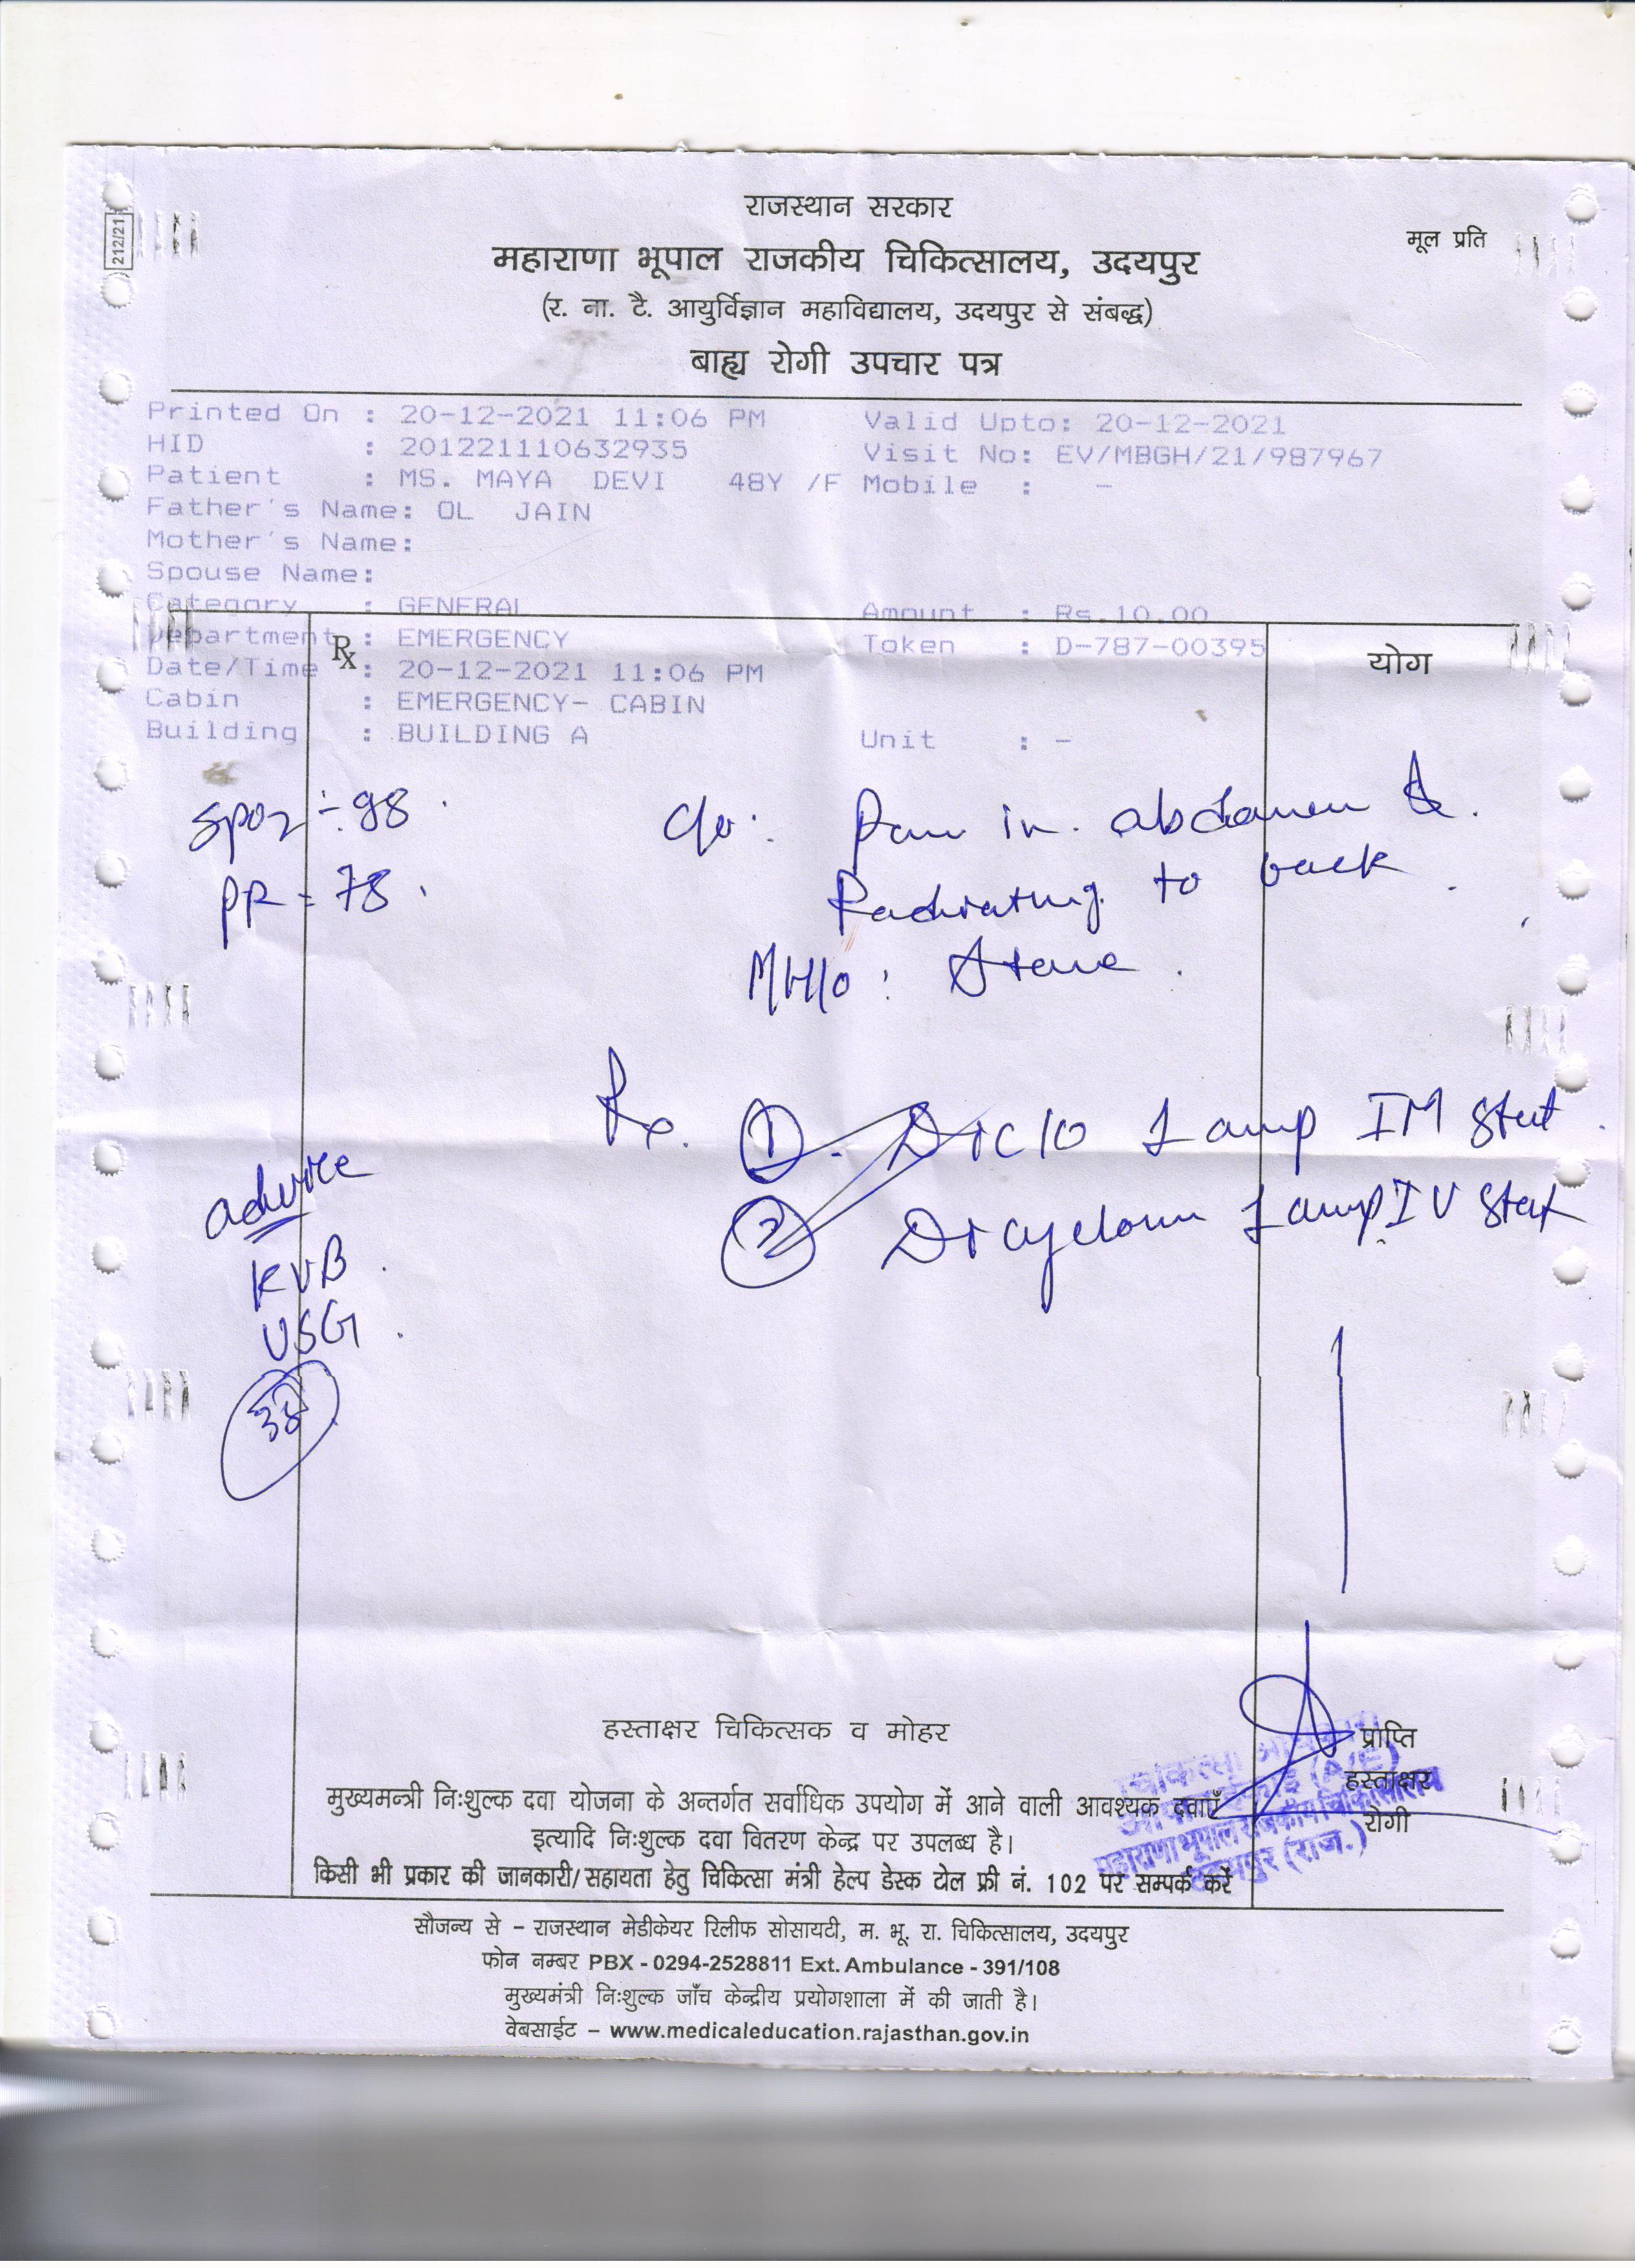 212/21
राजस्थान सरकार
मूल प्रति
महाराणा भूपाल राजकीय चिकित्सालय, उदयपुर
(र. ना. टै. आयुर्विज्ञान महाविद्यालय, उदयपुर से संबद्ध)
बाह्य रोगी उपचार पत्र
Printed On : 20-12-2021 11:06 PM Valid Upto: 20-12-2021
HID : 201221110632935 Visit No: EV/MBGH/21/987967
Patient : MS. MAYA DEVI 48Y /F Mobile : -
Father's Name: OL JAIN
Mother's Name:
Spouse Name:
Category : GENERAL Amount : Rs.10.00
Department : EMERGENCY Token : D-787-00395
Rx योग
Date/Time : 20-12-2021 11:06 PM
Cabin : EMERGENCY- CABIN
Building : BUILDING A Unit : -
SPO2 :- 98. C/o: Pain in. abdomen &.
PR = 78. Radiating to back.
MH/o: Stone.
Rx. 1. Diclo 1 amp IM Stat.
2 Dicyclomin 1 amp IV Stat
advice
KUB.
USG.
हस्ताक्षर चिकित्सक व मोहर
प्राप्ति
हस्ताक्षर
रोगी
मुख्यमन्त्री निःशुल्क दवा योजना के अन्तर्गत सर्वाधिक उपयोग में आने वाली आवश्यक दवाएँ
इत्यादि निःशुल्क दवा वितरण केन्द्र पर उपलब्ध है।
किसी भी प्रकार की जानकारी/सहायता हेतु चिकित्सा मंत्री हेल्प डेस्क टोल फ्री नं. 102 पर सम्पर्क करें
महाराणा भूपाल राजकीय चिकित्सालय
उदयपुर (राज.)
सौजन्य से - राजस्थान मेडीकेयर रिलीफ सोसायटी, म. भू. रा. चिकित्सालय, उदयपुर
फोन नम्बर PBX - 0294-2528811 Ext. Ambulance - 391/108
मुख्यमंत्री निःशुल्क जाँच केन्द्रीय प्रयोगशाला में की जाती है।
वेबसाईट - www.medicaleducation.rajasthan.gov.in